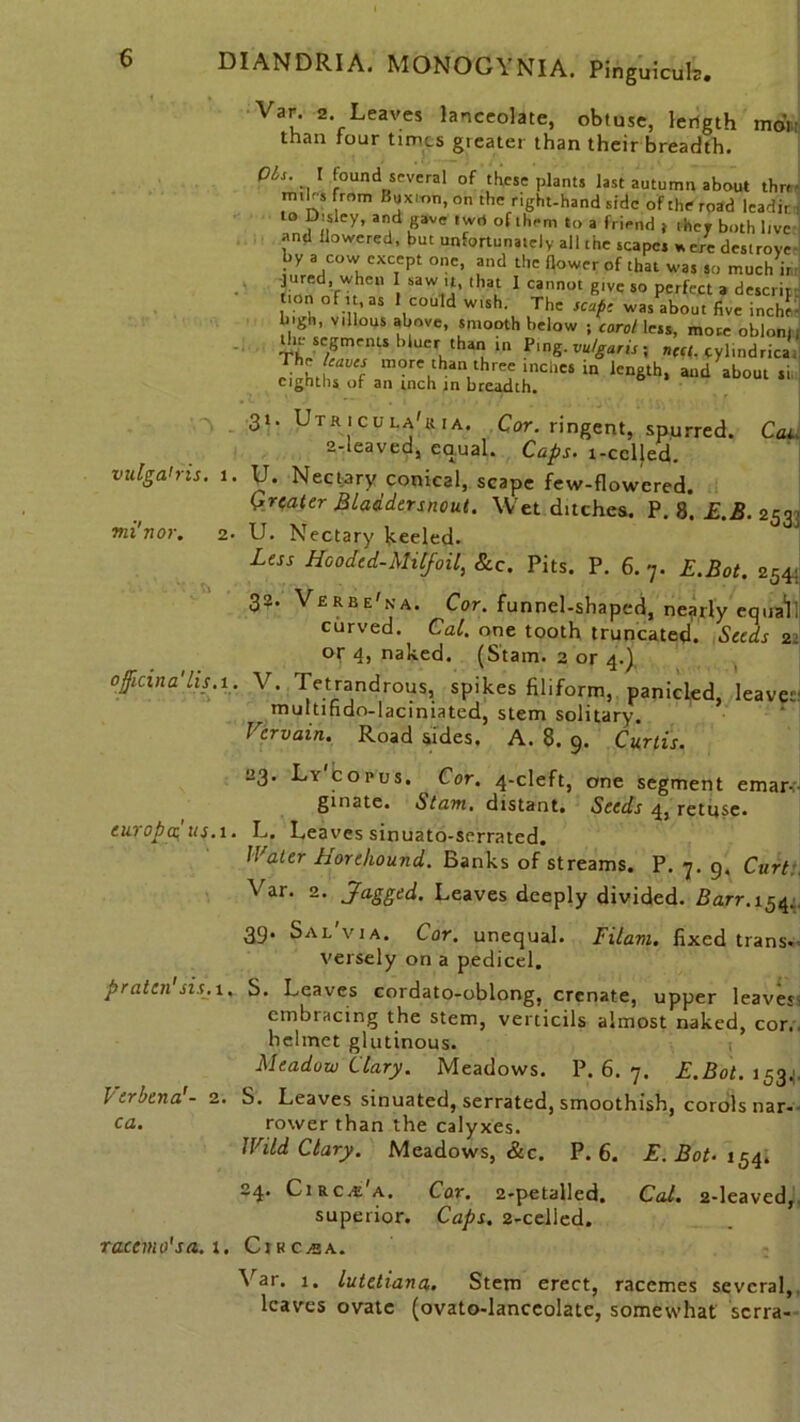 6 DIANDRIA. MONOGYNIA. Pinguicula.
Var. 2. Leaves lanceolate, obtuse, length mo
than four times greater than their breadth.
Obs. I found several of these plants last autumn about thr
miles from Buxton, on the right-hand side of the road leadi
to Disley, and gave two of them to a friend; they both live
and flowered, but unfortunately all the scapes were destroye
by a cow except one, and the flower of that was so much i
jured, when I saw it, that I cannot give so perfect a descrip
tion of it, as I could wish. The scape was about five inche
high, villous above, smooth below; corol less, more oblong
the segments bluer than in Ping. vulgaris; nect. cylindrica
The leaves more than three inches in length, and about si
eighths of an inch in breadth.
31. UTRICULA'RIA. Cor. ringent, spurred. Cal
2-leaved, equal. Caps. 1-celled.
vulga'ris. 1. U. Nectary conical, scape few-flowered.
Greater Bladdersnout. Wet ditches. P. 8. E.B. 253
mi'nor. 2. U. Nectary keeled.
Less Hooded-Milfoil, &c. Pits. P. 6. 7. E.Bot. 254
32. VERBE'NA. Cor. funnel-shaped, nearly equal
curved. Cal. one tooth truncated. Seeds 2
or 4, naked. (Stam. 2 or 4.)
officina'lis.1. V. Tetrandrous, spikes filiform, panicled, leaves
multifido-laciniated, stem solitary.
Vervain. Road sides. A. 8. 9. Curtis.
23. LY'COPUS. Cor. 4-cleft, one segment emar-
ginate. Stam. distant. Seeds 4, retuse.
europæ'us.1. L. Leaves sinuato-serrated.
Water Horehound. Banks of streams. P. 7. 9. Curt.
Var. 2. Jagged. Leaves deeply divided. Barr.154.
39. SAL'VIA. Cor. unequal. Filam. fixed trans-
versely on a pedicel.
praten'sis.1. S. Leaves cordato-oblong, crenate, upper leaves
embracing the stem, verticils almost naked, cor.
helmet glutinous.
Meadow Clary. Meadows. P. 6. 7. E.Bot. 153.
Verbena'- 2. S. Leaves sinuated, serrated, smoothish, corols nar-
ca. rower than the calyxes.
Wild Clary. Meadows, &c. P. 6. E. Bot. 154.
24. CIRCÆ'A. Cor. 2-petalled. Cal. 2-leaved,
superior. Caps. 2-celled.
racemo'sa. 1. CIRCÆA.
Var. 1. lutetiana. Stem erect, racemes several,
leaves ovate (ovato-lanceolate, somewhat serra-